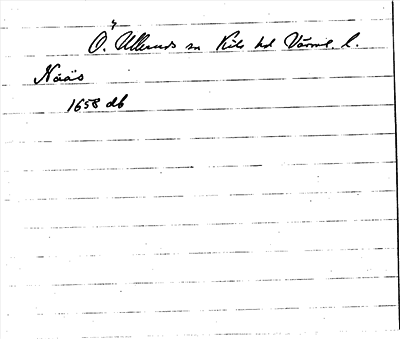 Ö. Ulleruds sn Kils hd Värml. l.
Nääs
1658 db